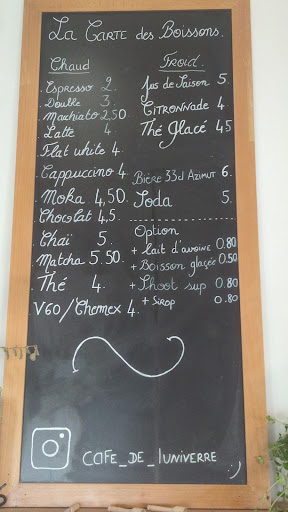 La Carte des Boissons.
Chaud
. Espresso 2.
. Double 3.
. Machiato 2,50.
. Latte 4.
. Flat white 4.
. Cappuccino 4.
. Moka 4,50.
. Chocolat 4,5.
. Chaï 5.
. Matcha 5.50.
. Thé 4.
V60/Chemex 4.
Froid.
Jus de Saison 5.
Citronnade 4.
Thé Glacé 45
Bière 33cl Azimut 6.
Soda 5.
Option
+ Lait d'avoine 0.80
+ Boisson glacée 0.50
+ Shoot sup 0.80
+ Sirop 0.80
CAFE_DE_lUNIVERRE
:)